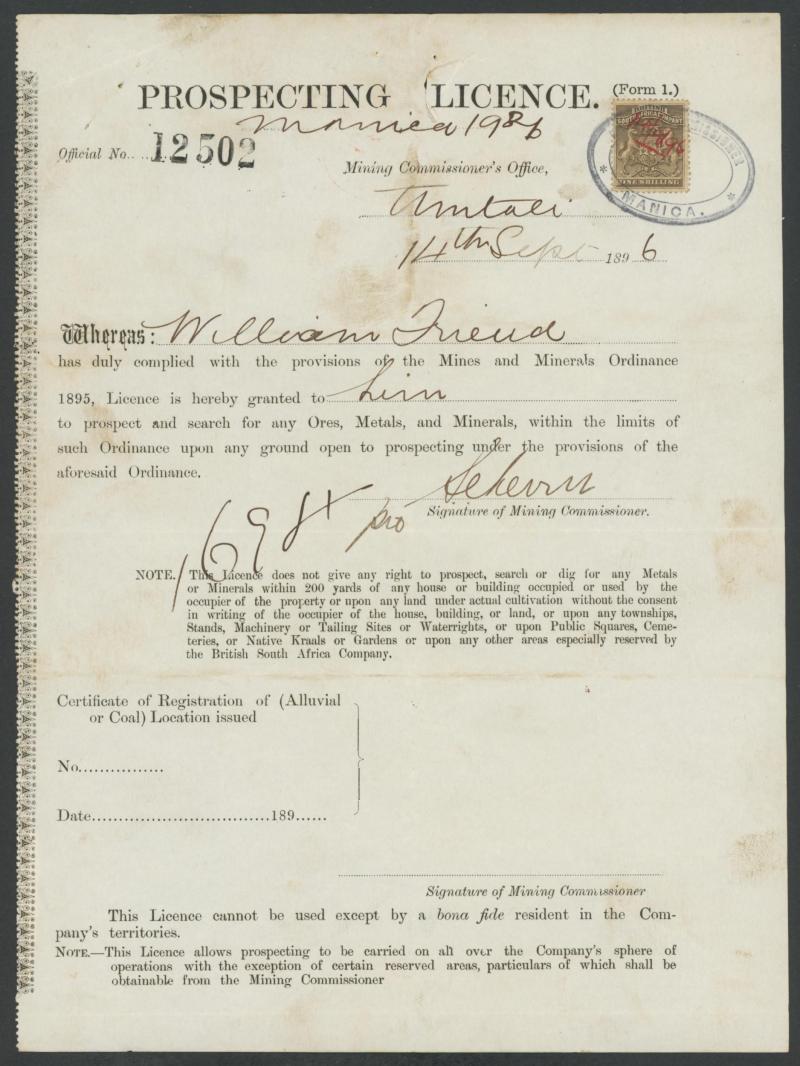 PROSPECTING LICENCE. (Form 1.)
Manica 1986
Official No. 12502
Mining Commissioner's Office,
MANICA.
ONE SHILLING
Umtali
14th Sept 1896
Whereas: William Friend
has duly complied with the provisions of the Mines and Minerals Ordinance
1895, Licence is hereby granted to him
to prospect and search for any Ores, Metals, and Minerals, within the limits of
such Ordinance upon any ground open to prospecting under the provisions of the
aforesaid Ordinance.
pro
Signature of Mining Commissioner.
NOTE. This Licence does not give any right to prospect, search or dig for any Metals
or Minerals within 200 yards of any house or building occupied or used by the
occupier of the property or upon any land under actual cultivation without the consent
in writing of the occupier of the house, building, or land, or upon any townships,
Stands, Machinery or Tailing Sites or Waterrights, or upon Public Squares, Ceme-
teries, or Native Kraals or Gardens or upon any other areas especially reserved by
the British South Africa Company.
Certificate of Registration of (Alluvial
or Coal) Location issued
No................
Date.................................189......
Signature of Mining Commissioner
This Licence cannot be used except by a bona fide resident in the Com-
pany's territories.
NOTE.—This Licence allows prospecting to be carried on all over the Company's sphere of
operations with the exception of certain reserved areas, particulars of which shall be
obtainable from the Mining Commissioner